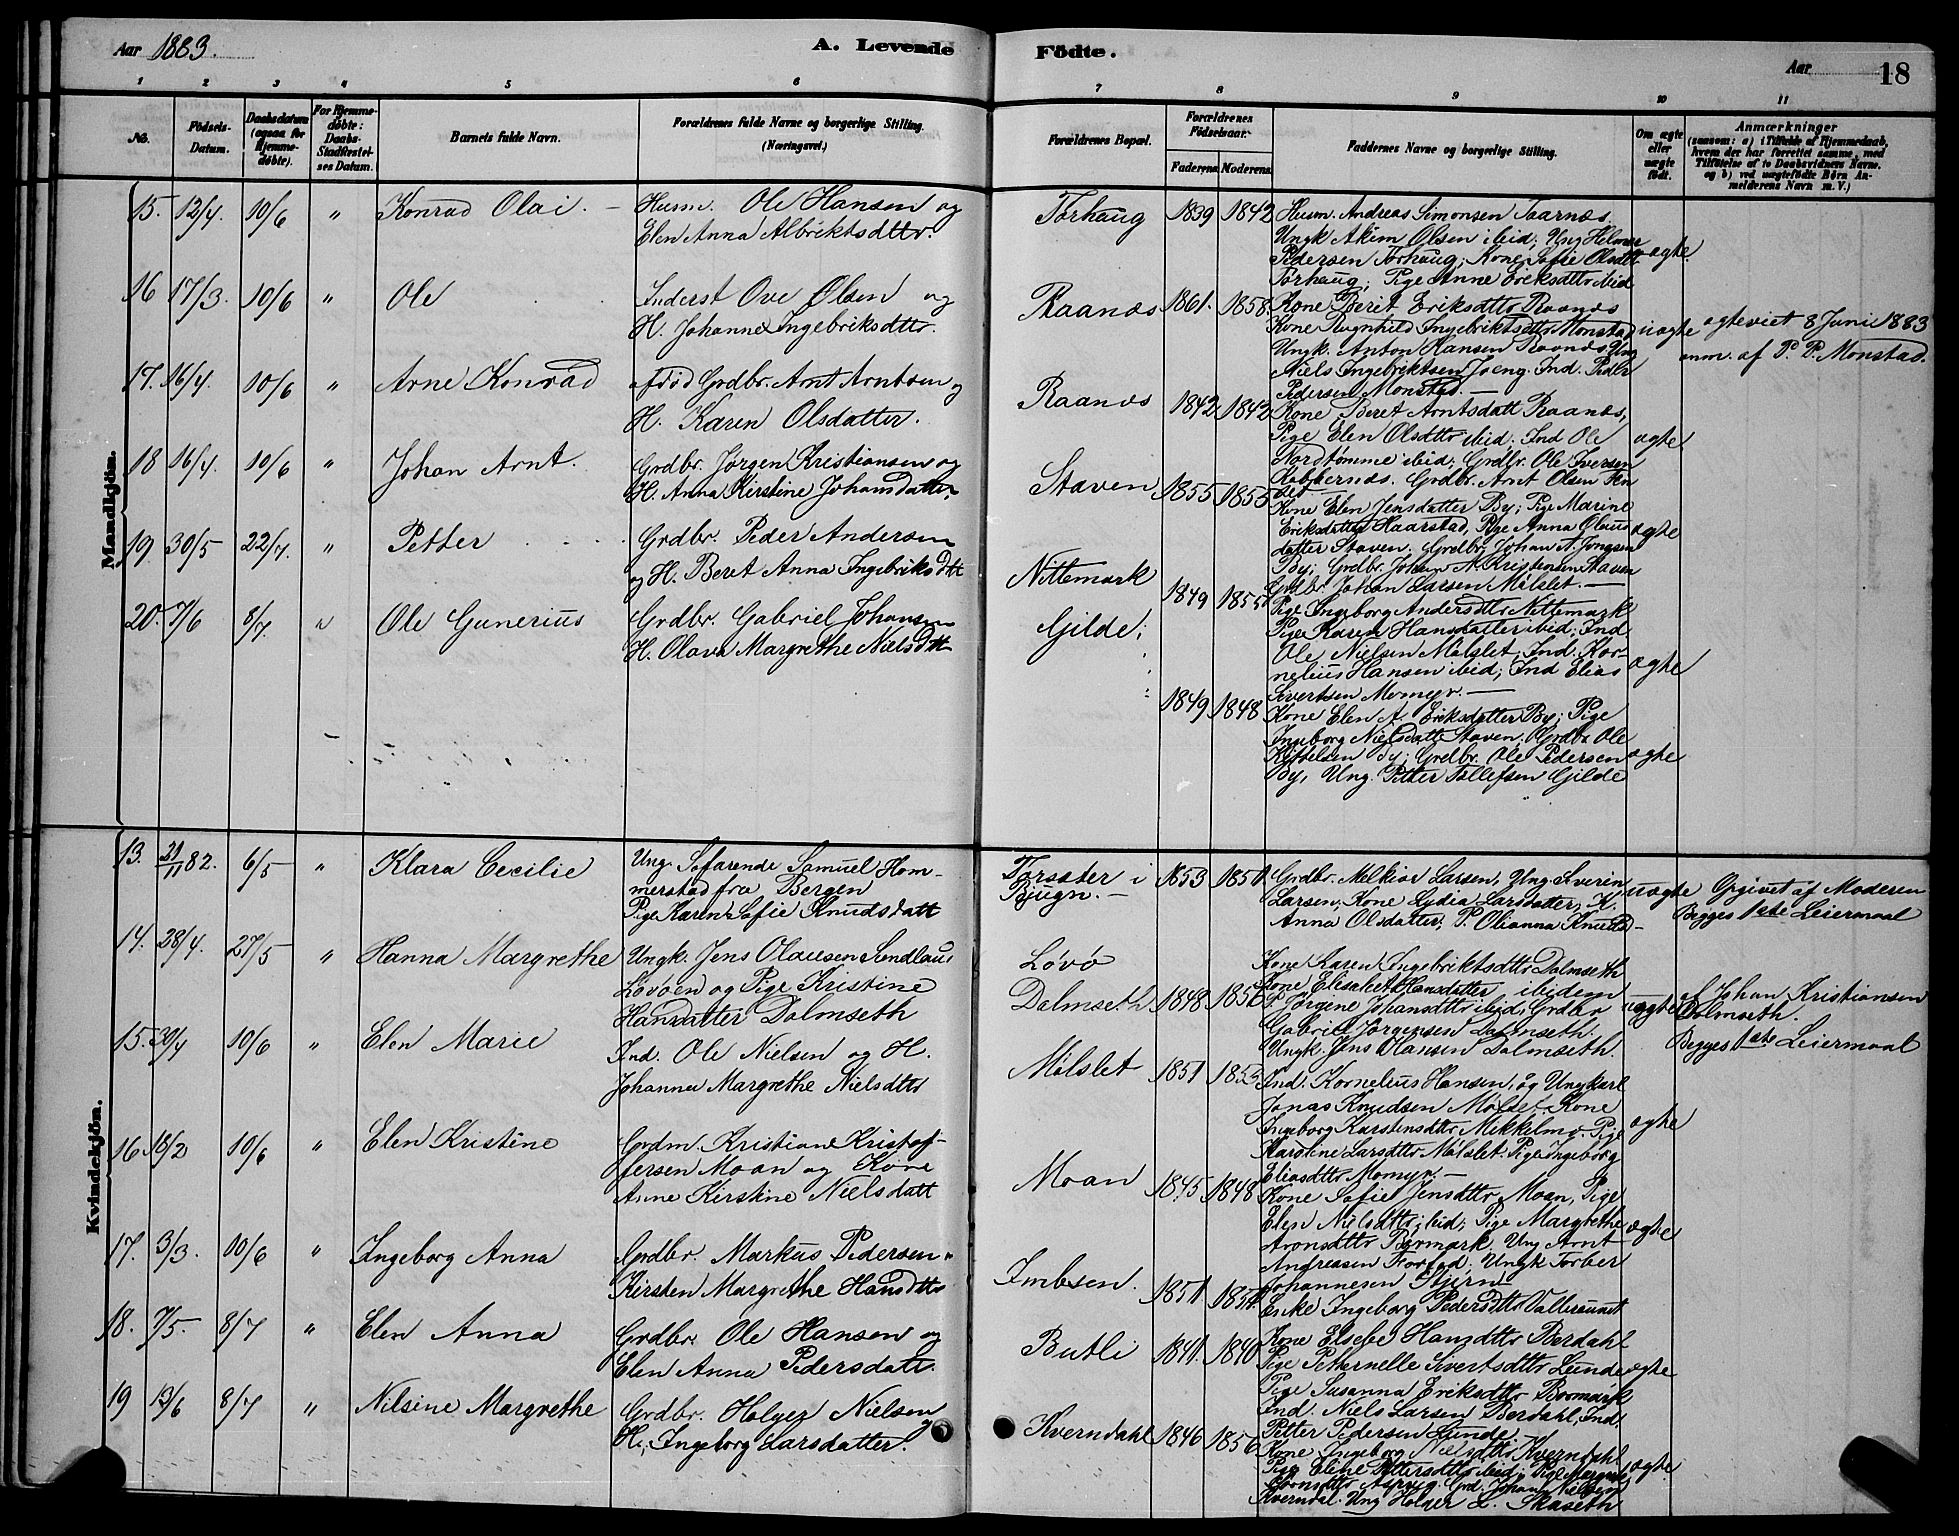 Aar 1883.
A. Levende
Födte.
Aar
18
1 2 3 4 5 6 7 8 9 10 11
No.
Födsels-
Datum.
Daabsdatum
(ogsaa for
Hjemme-
döbte).
For Hjemme-
döbte:
Daabs-
Stadfæstel-
ses Datum.
Barnets fulde Navn.
Forældrenes fulde Navne og borgerlige Stilling.
(Næringsvei.)
Forældrenes Bopæl.
Forældrenes
Födselsaar.
Faderens. Moderens.
Faddernes Navne og borgerlige Stilling.
Om ægte
eller
uægte
födt.
Anmærkninger
(saasom: a) i Tilfælde af Hjemmedaab,
hvem der har forrettet samme, med
Tilföielse af to Daabsvidners Navne.
og b) ved uægtefödte Börn An-
melderens Navn m. V.)
Mandkjön.
15. 12/4. 10/6 " Konrad Olai. Husm. Ole Hansen og
Elen Anna Albriktsdttr.
Torhaug 1839 1842
Husm. Andreas Simonsen Taarnæs.
Ungk Akim Olsen ibid; Ung Helmer
Pedersen Torhaug; Kone Sofie Olsdtt
Torhaug; Pige Anne Eriksdttr ibid
ægte
16 17/3. 10/6 " Ole Inderst Ove Olsen og
H. Johanne Ingebriksdttr.
Raanæs 1861. 1858.
Kone Berit Eriksdttr Raanæs
Kone Rugnhild Ingebriktsdttr Monstad
Ungk. Anton Hansen Raanæs Ung
Niels Ingebriktsen Joeng. Ind. Peder
Pedersen Monstad.
uægte
ægteviet 8 Juni 1883
anm. af P. P. Monstad.
17. 16/4. 10/6 " Arne Konrad afdød Grdbr. Arnt Arntsen og
H. Karen Olsdatter.
Raanæs 1842 1842
Kone Beret Arntsdatt Raanæs,
Pige Elen Olsdttr ibid. Ind Ole
Nordtømme ibid; Grdbr. Ole Iversen
Grdbr. Arnt Olsen
ægte
18 16/4. 10/6 " Johan Arnt. Grdbr. Jørgen Kristiansen og
H. Anna Kirstine Johansdatter
Staven 1855 1855
Kone Elen Jensdatter By; Pige Marine
Eriksdatter Haarstad, Pige Anna Olaus
datter Staven. Grdbr. Johan A. Jongsen
By; Grdbr. Johan A Kristensen Staven
Grdbr. Johan Larsen Mølslet.
ægte
19. 30/5 22/7. " Petter Grdbr. Peder Andersen
og H. Beret Anna IngebriksDtt
Nittemark 1849 1855
Pige Ingeborg Andersdttr Nittemark
Pige Karen Hansdatter ibid; Ind
Ole Nielsen Mølslet, Ind. Kor-
nelius Hansen ibid; Ind Elias
Sivertsen Momyr.
ægte
20. 7/6 8/7. " Ole Gunerius Grdbr. Gabriel Johansen
H. Olava Margrethe NielsDtt
Gilde; 1849 1848
Kone Elen A. Eriksdatter By; Pige
Ingeborg Nielsdatt Staven. Grdbr. Ole
By; Grdbr. Ole Pedersen
By, Ung. Petter Tollefsen Gilde
ægte
Kvindekjön.
13. 21/11 82. 6/5 " Klara Cecilie Ung. Søfarende Samuel Hom-
merstad fra Bergen
Pige Karen Sofie Knudsdatt
Torsæter i
Bjugn. 1853 1851
Grdbr. Melkior Larsen; Ung. Severin
Larsen, Kone Lydia Larsdatter, K.
Anna Olsdatter, P. Olianna Knuds-
uægte
Opgivet af Moderen
Begges 1ste Leiermaal
14. 28/4. 27/5 " Hanna Margrethe Ungk. Jens Olausen Sundlaus
Løvøen og Pige Kristine
Hansdatter Dalmseth
Løvø
Dalmseth 1848 1856
Kone Karen Ingebriktsdttr Dalmseth
Kone Elisabeth Hansdatter ibidem
P. Jørgine Johansdttr ibid; Grdbr
Gabriel Jørgensen Dalmseth.
Ungk. Jens Hansen Dalmseth.
uægte
af Johan Kristiansen
Dalmseth.
Begges 1ste Leiermaal
15. 30/4 10/6 " Elen Marie Ind. Ole Nielsen og H.
Johanna Margrethe Nielsdttr
Mølslet 1851 1853
Ind. Kornelius Hansen, og Ungkarl
Jonas Knudsen Mølslet. Kone
Ingeborg Karstensdttr Mekkelmo. Pige
Karoline Larsdttr Mølslet. Pige Ingeborg
Eliasdttr Momyr.
ægte
16 18/2 10/6 " Elen Kristine Grdm. Kristian Kristof-
fersen Moan og Kone
Anne Kirstine Nielsdatt
Moan 1845 1848
Kone Sofie Jensdttr Moan, Pige
Elen Nielsdttr ibid; Pige Margrethe
Aronsdttr Bormark Ung Arnt
Andreasen Forfod; Ungk Torber
Johannesen Stjern
ægte
17. 3/3. 10/6 " Ingeborg Anna Grdbr. Markus Pedersen
Kirsten Margrethe Hansdttr
Imbsen. 1851 1851
Enke Ingeborg Pedersdttr Valleraunet
18. 7/5. 8/7 " Elen Anna Grdbr. Ole Hansen og
Elen Anna Pedersdatt.
Butli 1841. 1840
Kone Elsebe Hansdttr Berdahl
Pige Peternelle Sivertsdttr Lunde
Pige Susanna Eriksdttr Bormark
Ind. Niels Larsen Berdahl, Ind
Petter Pedersen Lunde.
ægte
19 13/6 8/7 " Nilsine Margrethe Grdbr. Holger Nielsen
H. Ingeborg Larsdatter.
Kverndahl 1846 1856
Kone Ingeborg Nielsdttr Kverndahl
Pige Eline Pettersdttr ibid; Pige Margrete
Grd. Johan Nielsen
Kverndal. Ung Holger L. Skaseth
ægte